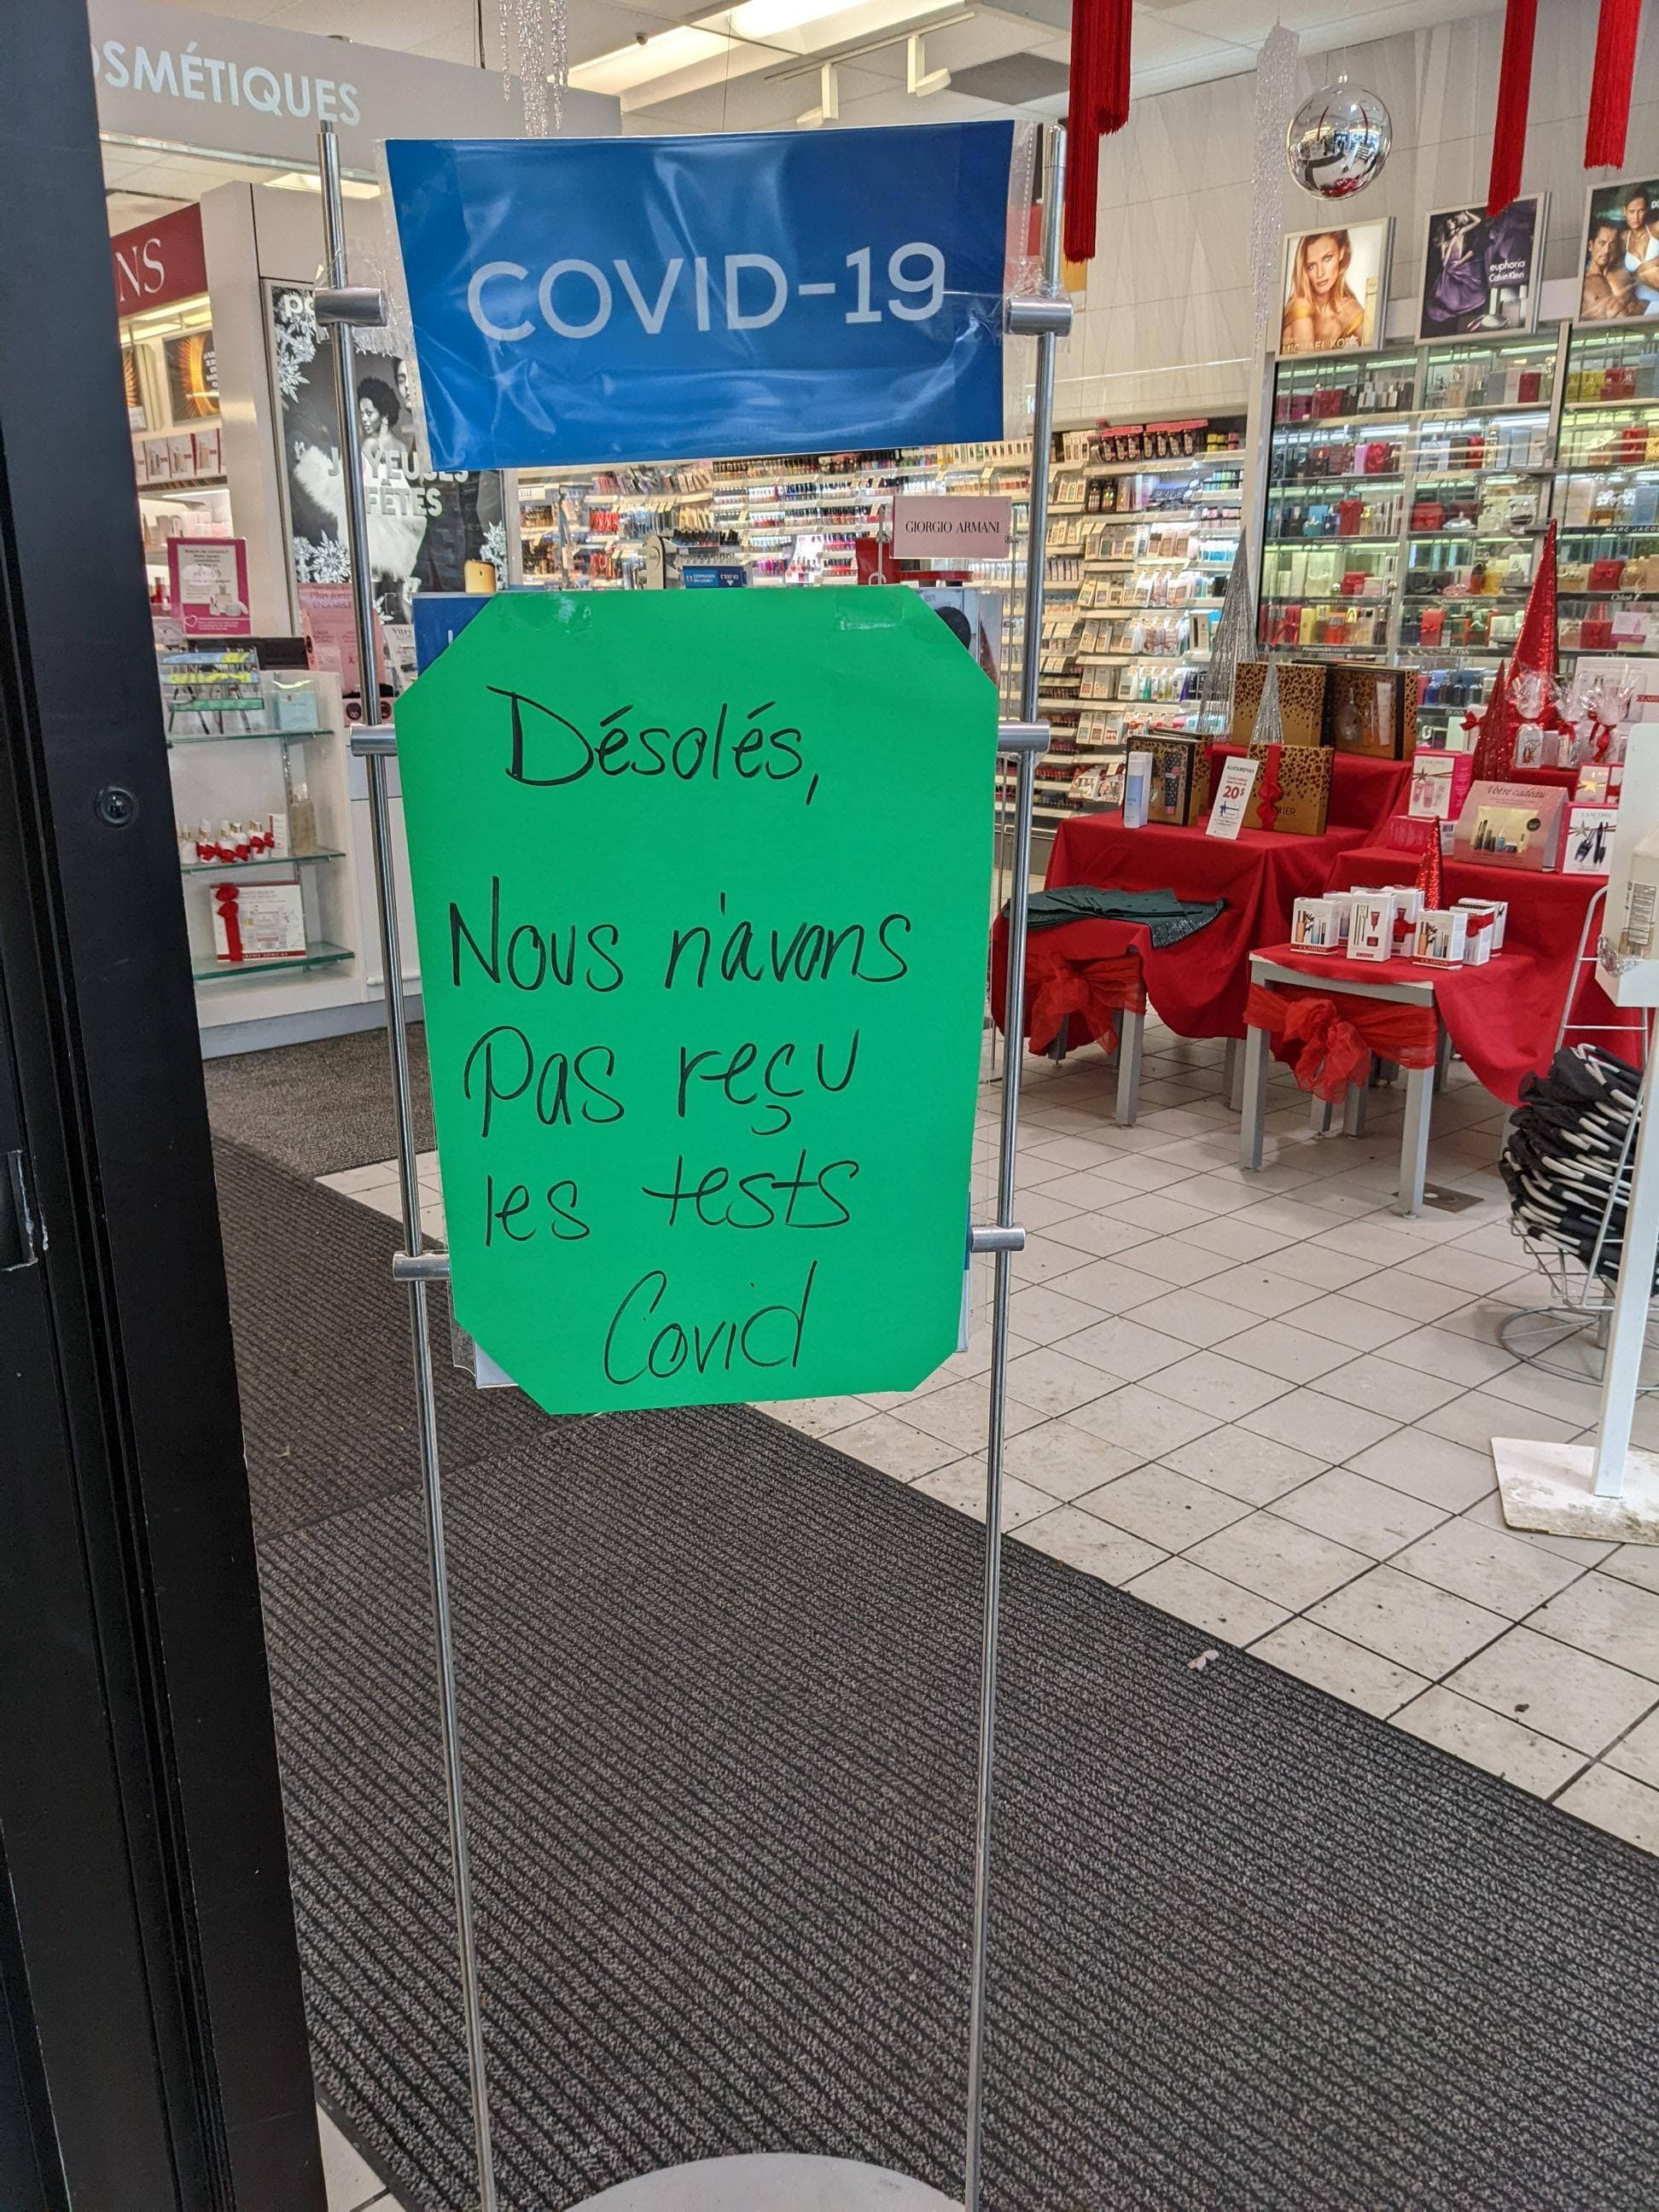 OSMÉTIQUES
COVID-19
NS
euphoria
Calvin Klein
MICHAEL KORS
JOYEUSES
FÊTES
GIORGIO ARMANI
MARC JACO
Chloé
Désolés,
Nous n'avons
Pas reçu
les tests
Covid
20$
Votre cadeau
LANCÔME
CLARINS